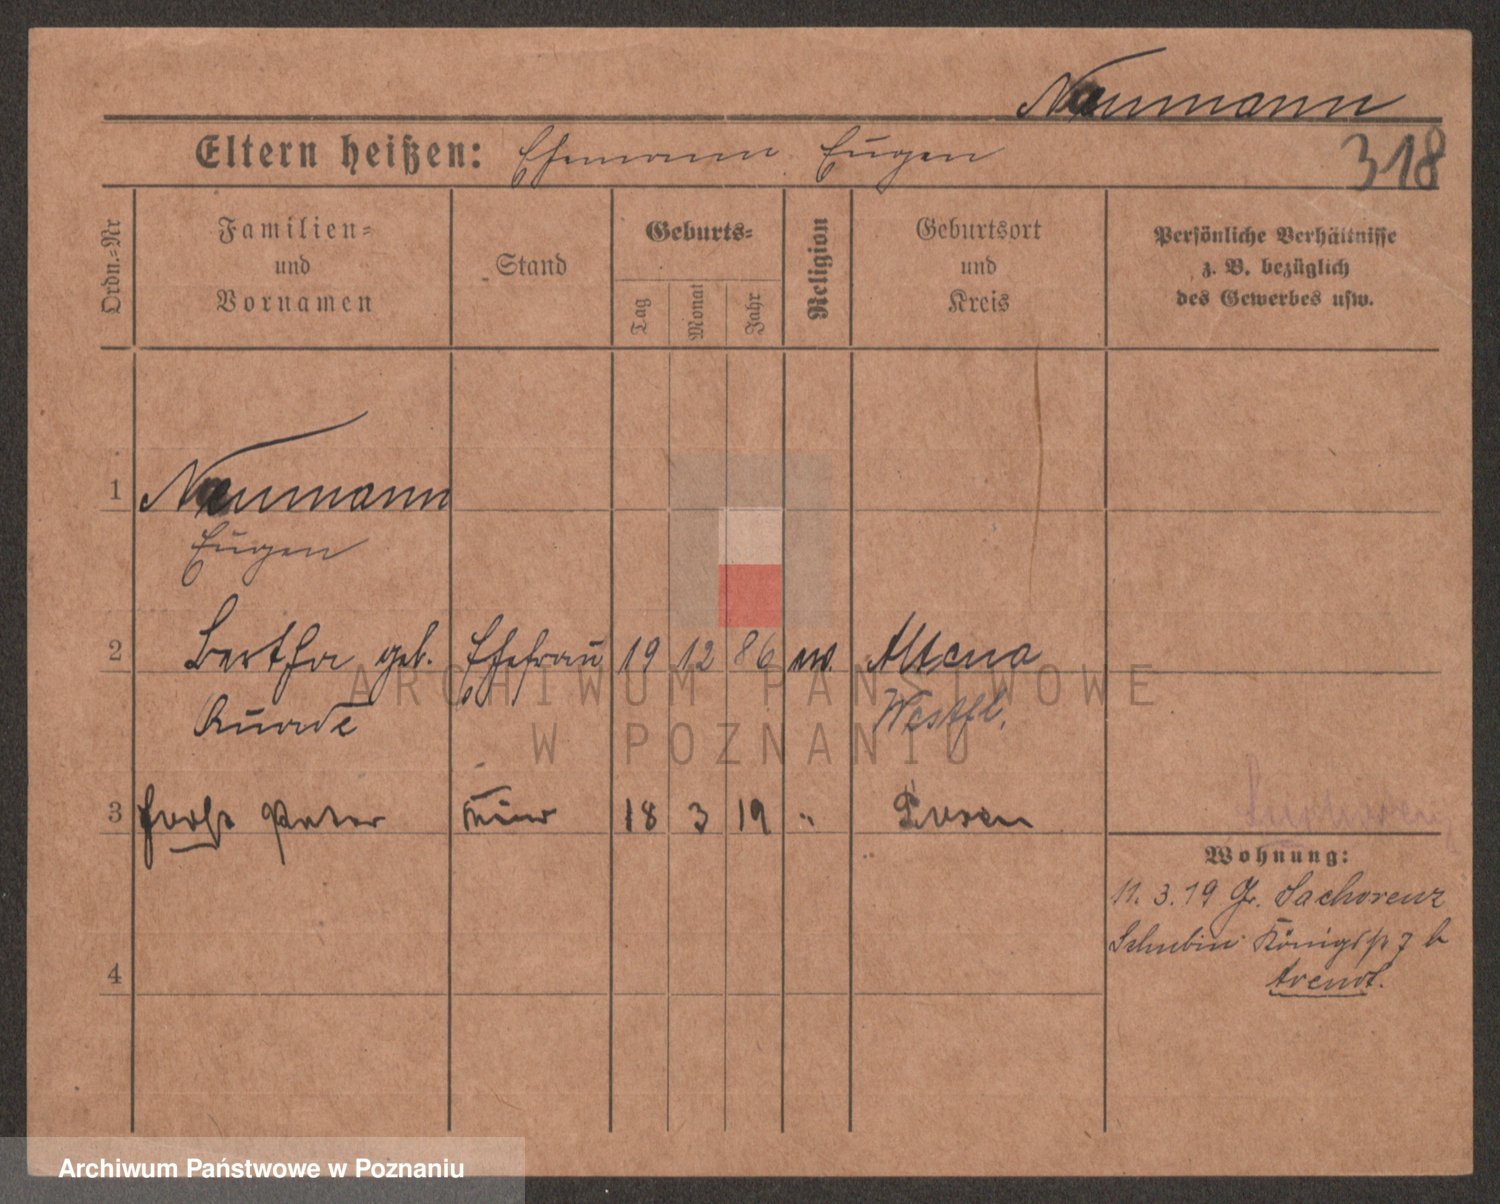 Naumann
Eltern heißen: Ehemann Eugen
318
Ordn.-Nr
Familien-
und
Vornamen
Stand
Geburts-
Tag
Monat
Jahr
Religion
Geburtsort
und
Kreis
Persönliche Verhältnisse
z. B. bezüglich
des Gewerbes usw.
1 Naumann
Eugen
2 Bertha geb. Ehefrau 19 12 86 ev. Altena
Quade Westfl.
3 Peter Kind 18 3 19 " Posen
Wohnung:
11. 3. 19
Schubin Königspl 7 b
Arendt.
4
ARCHIWUM PAŃSTWOWE
W POZNANIU
Archiwum Państwowe w Poznaniu